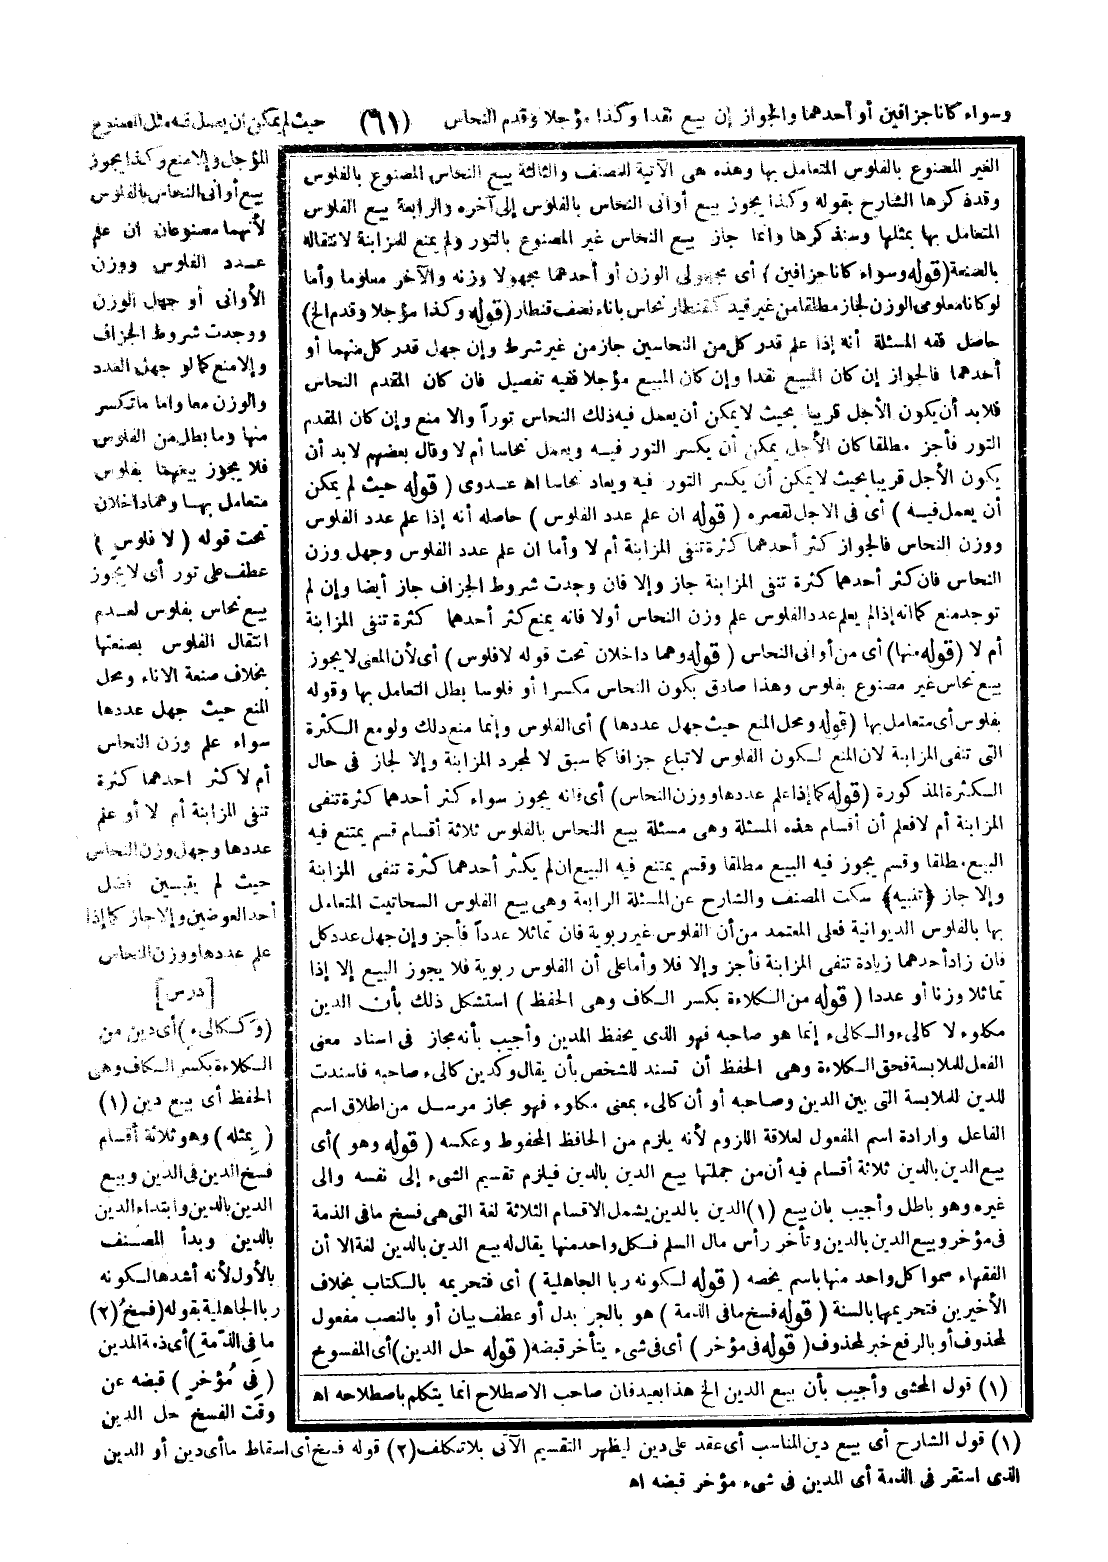 وسواء كانا جزافين أو أحدهما والجواز إن بيع نقدا وكذا مؤجلا وقدم النحاس (٦١) حيث لم يمكن ان يعمل فيه مثل المصنوع
المؤجل وإلا منع وكذا يجوز
بيع أوانى النحاس بالفلوس
لأنهما مصنوعان ان علم
عدد الفلوس ووزن
الأوانى أو جهل الوزن
ووجدت شروط الجزاف
وإلا منع كما لو جهل العدد
والوزن معا واما ما تكسر
منها وما بطل من الفلوس
فلا يجوز بيعهما بفلوس
متعامل بها وهما داخلان
تحت قوله ( لا فلوسٍ )
عطف على تور أى لا يجوز
بيع نحاس بفلوس لعدم
انتقال الفلوس بصنعتها
بخلاف صنعة الاناء ومحل
المنع حيث جهل عددها
سواء علم وزن النحاس
أم لا كثر احدهما كثرة
تنفى المزابنة أم لا أو علم
عددها وجهل وزن النحاس
حيث لم يتبين فضل
أحد العوضين وإلا جاز كما إذا
علم عددها ووزن النحاس
[درس]
(وَكَكالىءٍ) أى دين من
الكلاءة بكسر الكاف وهى
الحفظ أى بيع دين (١)
( بِمثله ) وهو ثلاثة أقسام
فسخ الدين فى الدين وبيع
الدين بالدين وابتداء الدين
بالدين وبدأ المصنف
بالأول لأنه أشدها لكونه
ربا الجاهلية بقوله (فسخُ (٢)
ما فى الذّمة) أى ذمة المدين
( فِى مُؤخّرٍ ) قبضه عن
وقت الفسخ حل الدين
الغير المصنوع بالفلوس المتعامل بها وهذه هى الآتية للمصنف والثالثة بيع النحاس المصنوع بالفلوس
وقد ذكرها الشارح بقوله وكذا يجوز بيع أوانى النحاس بالفلوس إلى آخره والرابعة بيع الفلوس
المتعامل بها بمثلها وسنذكرها وانما جاز بيع النحاس غير المصنوع بالتور ولم يمنع للمزابنة لانتقاله
بالصنعة (قوله وسواء كانا جزافين) أى مجهولى الوزن أو أحدهما مجهولا وزنه والآخر معلوما وأما
لو كانا معلومى الوزن لجاز مطلقا من غير قيد كقنطار نحاس باناء نصف قنطار (قوله وكذا مؤجلا وقدم الخ)
حاصل فقه المسئلة أنه إذا علم قدر كل من النحاسين جاز من غير شرط وإن جهل قدر كل منهما أو
أحدهما فالجواز إن كان المبيع نقدا وإن كان المبيع مؤجلا ففيه تفصيل فان كان المقدم النحاس
فلابد أن يكون الأجل قريبا بحيث لا يمكن أن يعمل فيه ذلك النحاس توراً والا منع وإن كان المقدم
التور فأجز مطلقا كان الأجل يمكن أن يكسر التور فيه ويعمل نحاسا أم لا وقال بعضهم لا بد أن
يكون الأجل قريبا بحيث لا يمكن أن يكسر التور فيه ويعاد نحاسا اه عدوى ( قوله حيث لم يمكن
أن يعمل فيه ) أى فى الاجل لقصره ( قوله ان علم عدد الفلوس ) حاصله أنه إذا علم عدد الفلوس
ووزن النحاس فالجواز كثر أحدهما كثرة تنفى المزابنة أم لا وأما ان علم عدد الفلوس وجهل وزن
النحاس فان كثر أحدهما كثرة تنفى المزابنة جاز وإلا فان وجدت شروط الجزاف جاز أيضا وإن لم
توجد منع كما انه إذا لم يعلم عدد الفلوس علم وزن النحاس أولا فانه يمنع كثر أحدهما كثرة تنفى المزابنة
أم لا (قوله منها) أى من أوانى النحاس ( قوله وهما داخلان تحت قوله لا فلوس ) أى لأن المعنى لا يجوز
بيع نحاس غير مصنوع بفلوس وهذا صادق بكون النحاس مكسرا أو فلوسا بطل التعامل بها وقوله
بفلوس أى متعامل بها (قوله ومحل المنع حيث جهل عددها ) أى الفلوس وإنما منع ذلك ولو مع الكثرة
التى تنفى المزابنة لان المنع لكون الفلوس لا تباع جزافا كما سبق لا لمجرد المزابنة وإلا لجاز فى حال
الكثرة المذكورة (قوله كما إذا علم عددها ووزن النحاس) أى فانه يجوز سواء كثر أحدهما كثرة تنفى
المزابنة أم لا فعلم أن أقسام هذه المسئلة وهى مسئلة بيع النحاس بالفلوس ثلاثة أقسام قسم يمتنع فيه
البيع مطلقا وقسم يجوز فيه البيع مطلقا وقسم يمتنع فيه البيع ان لم يكثر أحدهما كثرة تنفى المزابنة
وإلا جاز ﴿تنبيه﴾ سكت المصنف والشارح عن المسئلة الرابعة وهى بيع الفلوس السحاتيت المتعامل
بها بالفلوس الديوانية فعلى المعتمد من أن الفلوس غير ربوية فان تماثلا عدداً فأجز وإن جهل عدد كل
فان زاد أحدهما زيادة تنفى المزابنة فأجز وإلا فلا وأما على أن الفلوس ربوية فلا يجوز البيع إلا إذا
تماثلا وزنا أو عددا ( قوله من الكلاءة بكسر الكاف وهى الحفظ ) استشكل ذلك بأن الدين
مكلوء لا كالىء والكالىء إنما هو صاحبه فهو الذى يحفظ المدين وأجيب بأنه مجاز فى اسناد معنى
الفعل للملابسة فحق الكلاءة وهى الحفظ أن تسند للشخص بأن يقال وكدين كالىء صاحبه فاسندت
للدين للملابسة التى بين الدين وصاحبه أو أن كالىء بمعنى مكلوء فهو مجاز مرسل من اطلاق اسم
الفاعل وارادة اسم المفعول لعلاقة اللزوم لأنه يلزم من الحافظ المحفوط وعكسه ( قوله وهو ) أى
بيع الدين بالدين ثلاثة أقسام فيه أن من جملتها بيع الدين بالدين فيلزم تقسيم الشىء إلى نفسه والى
غيره وهو باطل وأجيب بان بيع (١) الدين بالدين يشمل الاقسام الثلاثة لغة التى هى فسخ ما فى الذمة
فى مؤخر وبيع الدين بالدين وتأخر رأس مال السلم فكل واحد منها يقال له بيع الدين بالدين لغة الا أن
الفقهاء سموا كل واحد منها باسم يخصه ( قوله لكونه ربا الجاهلية ) أى فتحريمه بالكتاب بخلاف
الأخيرين فتحريمها بالسنة ( قوله فسخ ما فى الذمة ) هو بالجر بدل أو عطف بيان أو بالنصب مفعول
لمحذوف أو بالرفع خبر لمحذوف ( قوله فى مؤخر ) أى فى شىء يتأخر قبضه ( قوله حل الدين) أى المفسوخ
(١) قول المحشى وأجيب بأن بيع الدين الخ هذا بعيد فان صاحب الاصطلاح انما يتكلم باصطلاحه اه
(١) قول الشارح أى بيع دين المناسب أى عقد على دين ليظهر التقسيم الآتى بلا تكلف (٢) قوله فسخ أى اسقاط ما أى دين أو الدين
الذى استقر فى الذمة أى المدين فى شىء مؤخر قبضه اه